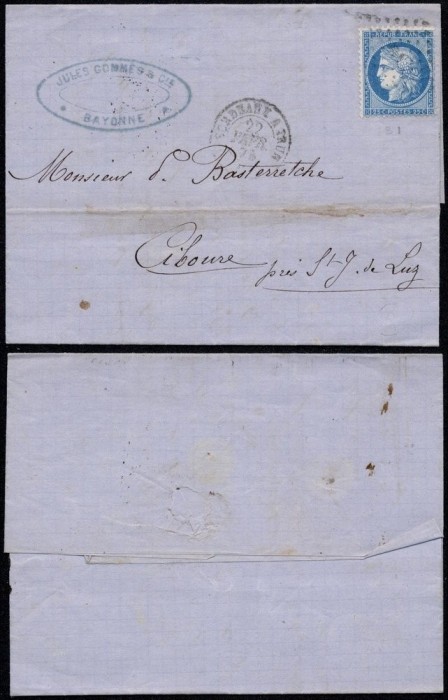 JULES GOMMÈS & CIE
BAYONNE
REPUB. FRANC.
25 C. POSTES 25 C.
BORDEAUX A IRUN
22
FEVR.
Monsieur d. Basterretche
Ciboure
près St. J. de Luz